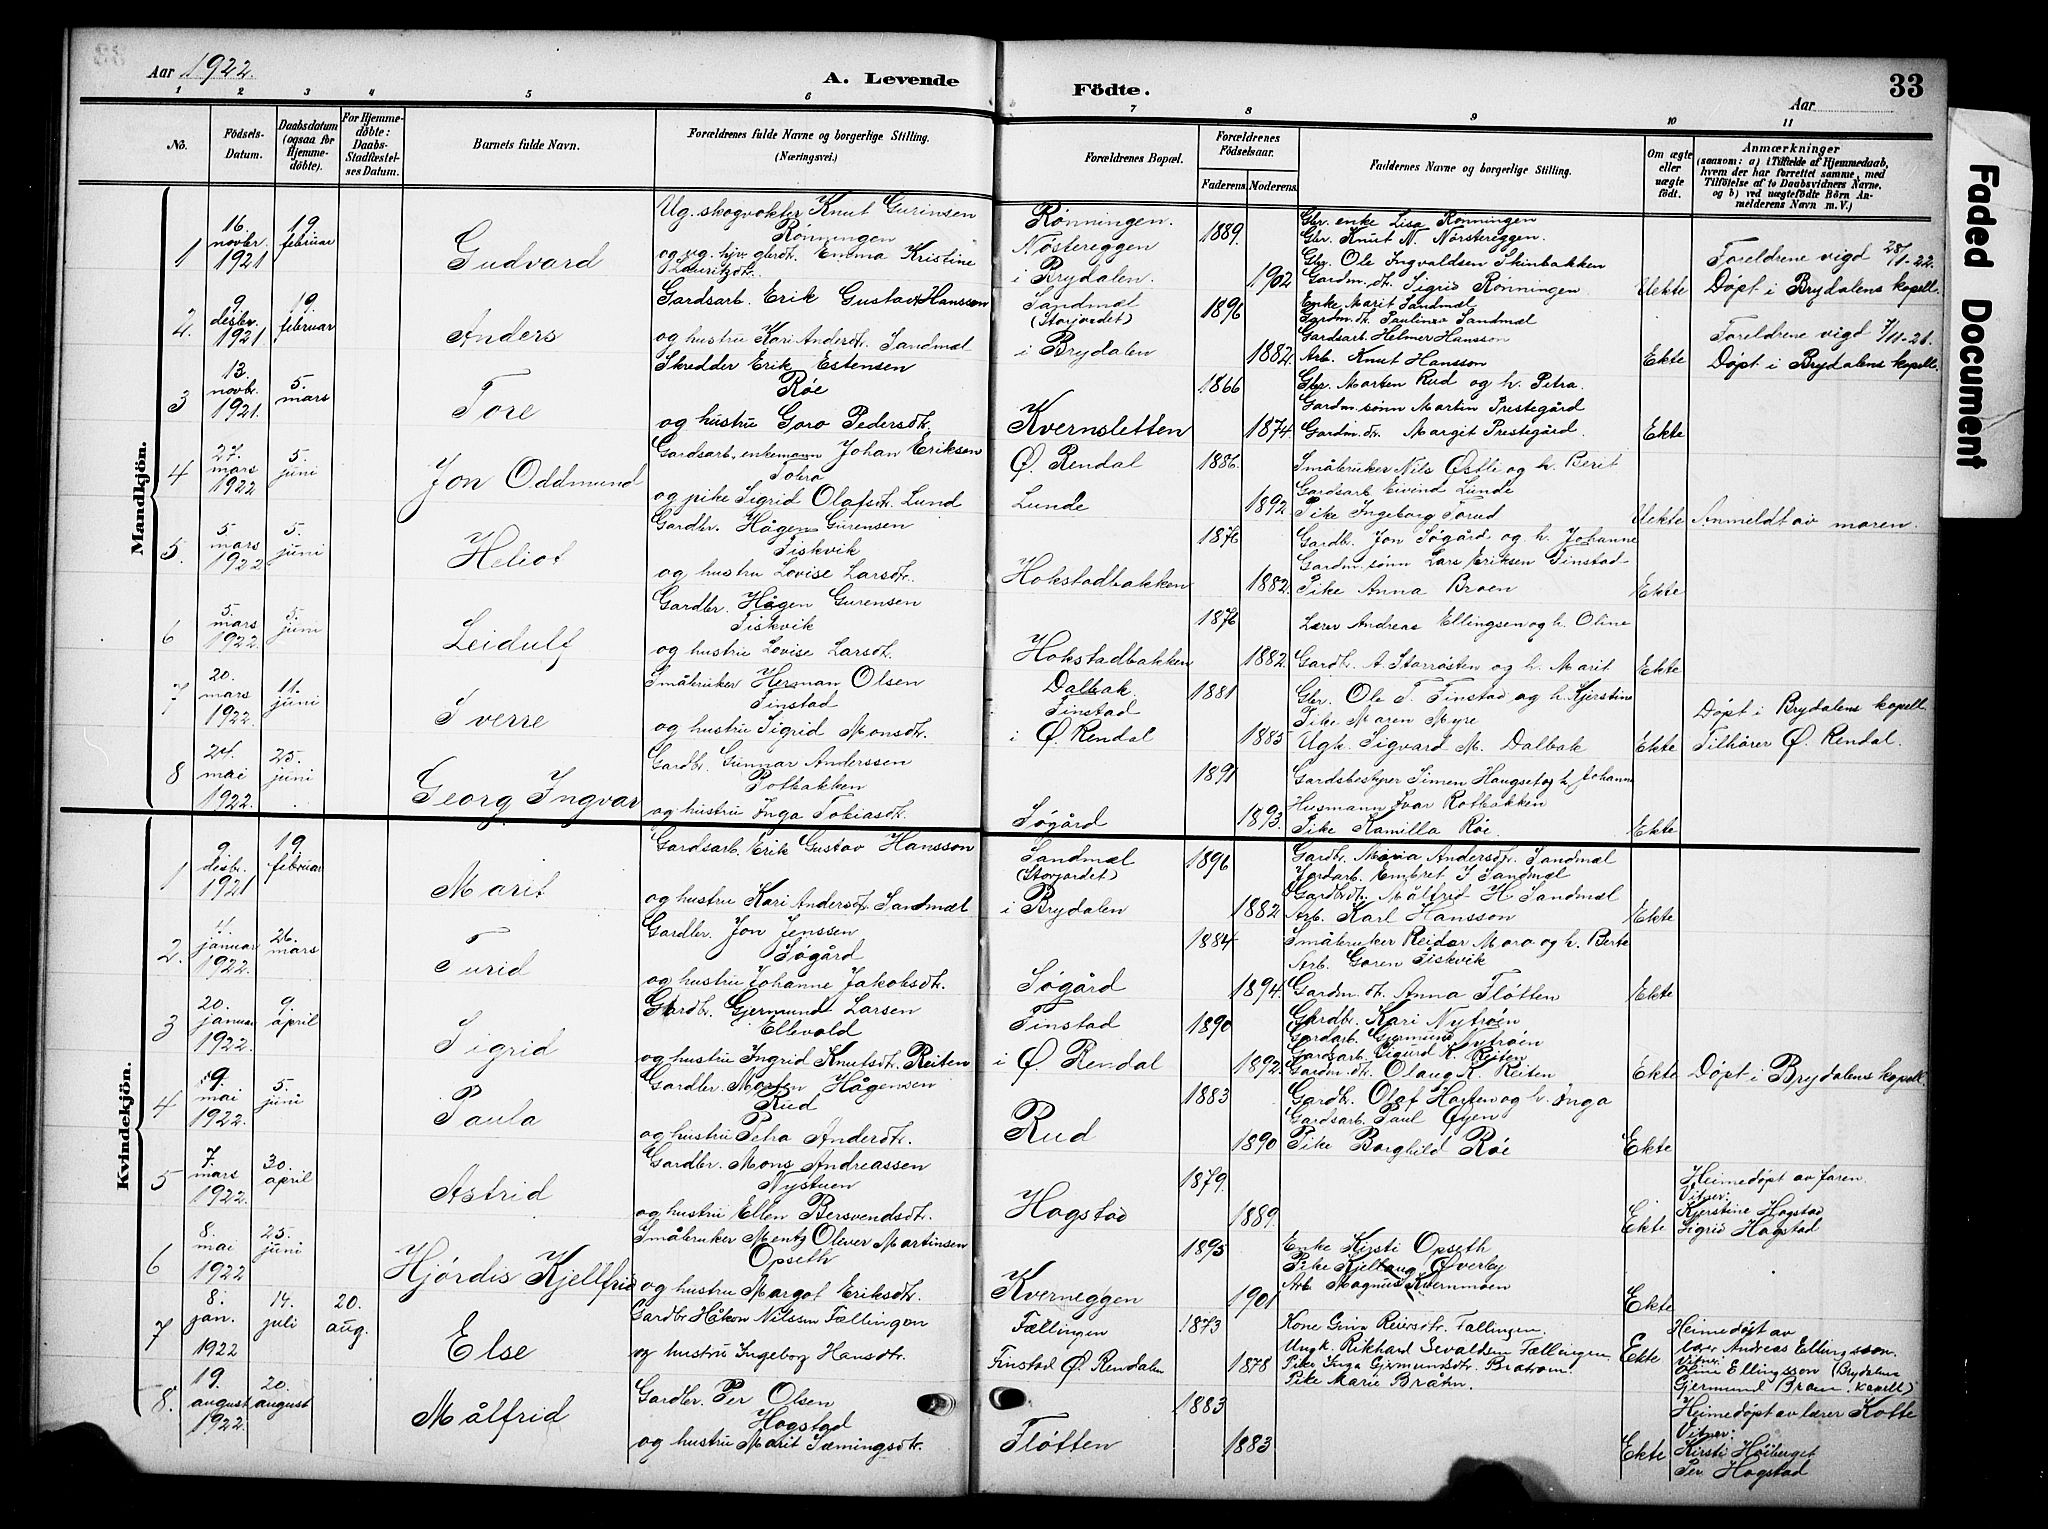 Aar 1922.
A. Levende
Födte.
Aar
33
1 2 3 4 5 6 7 8 9 10 11
No.
Födsels-
Datum.
Daabsdatum
(ogsaa for
Hjemme-
döbte).
For Hjemme-
döbte:
Daabs-
Stadfæstel-
ses Datum.
Barnets fulde Navn.
Forældrenes fulde Navne og borgerlige Stilling.
(Næringsvei.)
Forældrenes Bopæl.
Forældrenes
Födselsaar.
Faderens. Moderens.
Faddernes Navne og borgerlige Stilling.
Om ægte
eller
uægte
födt.
Anmærkninger
(saasom: a) i Tilfælde af Hjemmedaab,
hvem der har forrettet samme, med
Tilföielse af to Daabsvidners Navne,
og b) ved uægtefödte Börn An-
melderens Navn m. V.)
Mandkjön.
1
16. novbr. 1921
19 februar
Gudvard
Ug. skogvokter Knut Gurinsen
Rønningen
og ug. glbrdt. Emma Kristine
Lauritzdt.
Rønningen.
Nøstereggen
i Brydalen.
1889.
1902
Gbr. enke Lisa Rønningen
Gbr. Knut N. Nörstereggen.
Gbr. Ole Ingvaldsen Skinbakken
Gardm. dt. Sigrid Rønningen.
Uekte
Foreldrene vigd 28/1-22.
Døpt i Brydalens kapell.
2.
9 desbr. 1921
19. februar
Anders
Gardsarb. Erik Gustav Hansson
og hustru Kari Andersdt. Sandmæl
Sandmæl
(Storjordet)
i Brydalen
1896
1882.
Enke Marit Sandmæl
Gardm. dt. Pauline Sandmæl
Gardsarb Helmer Hansson
Arb. Knut Hansson
Ekte
Foreldrene vigd 7/11-21.
Døpt i Brydalens kapell.
3
13. novb. 1921.
5. mars
Tore
Skredder Erik Estensen
Røe
og hustru Goro Pedersdt.
Kvernsletten
1866
1874.
Gbr. Morten Rud og h. Petra.
Gardm. sønn Martin Prestegård
Gardm. dt. Margit Prestegård.
Ekte
4
27. mars 1922
5. juni
Jon Oddmund
Gardsarb. enkemann Johan Eriksen
og pike Sigrid Olafsdt. Lund
Ø. Rendal
Lunde
1886.
1892
Småbruker Nils Østli og h. Berit
Gardsarb Eivind Lunde
Pike Ingeborg Torud
Uekte
Anmeldt av moren.
5.
5. mars 1922
5. juni
Heliot
Gardbr. Hågen Gurensen
Fiskvik
og hustru Lovise Larsdt.
Hokstadbakken
1876
1882.
Gardb. Jon Søgård og h. Johanne
Gardm. sønn Lars Eriksen Finstad
Pike Anna Broen
Ekte
6
5. mars 1922.
5. juni
Leidulf
Gardbr. Hågen Gurensen
Fiskvik
og hustru Lovise Larsdt.
Hokstadbakken
1876
1882.
Lærer Andreas Ellingsen og h. Oline
Gardb. A. Storrøsten og h. Marit
Ekte
7
20. mars 1922.
11. juni
Sverre
Småbruker Herman Olsen
Finstad
og hustru Sigrid Monsdt.
Dalbak.
Finstad
i Ø. Rendal
1881
1883
Gbr. Ole T. Finstad og h. Kjerstine
Pike Maren Myre
Ugk. Sigvard M. Dalbak
Ekte
Døpt i Brydalens kapell.
Tilhører Ø. Rendal.
8
24. mai 1922.
25. juni
Georg Ingvar
Gardbr. Gunnar Anderssen
Rotbakken
og hustru Inga Tobiasdt.
Søgård
1891
1893.
Gardsbestyrer Simen Haugset og h. Johanne
Husmann Ivar Rotbakken
Pike Kamilla Røe.
Ekte
Kvindekjön.
1
9. desbr. 1921
19. februar
Marit
Gardsarb. Erik Gustav Hansson
og hustru Kari Andersdt. Sandmæl
Sandmæl
(Storjordet)
i Brydalen
1896
1882
Gardbr. Maria Andersdt. Sandmæl
Jordarb. Embret J Sandmæl
Gardbdt. Målfrid H Sandmæl
Arb. Karl Hansson
Ekte
2.
januar 1922
26. mars
Turid
Gardbr. Jon Jenssen
Søgård
og hustru Johanne Jakobsdt.
Søgård
1884
1894.
Småbruker Reidar Moro og h. Berte
Arb. Goren Fiskvik
Gardm. dt. Anna Fløtten
Ekte
3
20. januar 1922.
9. april
Sigrid
Gardbr. Gjermund Larsen
Ellevold
og hustru Ingrid Knutsdt. Reiten
Finstad
i Ø. Rendal
1890
1892
Gardbr. Kari Nytrøen
Gardarb. Gjermund Nytrøen
Gardsarb. Sigurd K. Reiten
Gardm. dt. Olaug K. Reiten
Ekte
Døpt i Brydalens kapell.
4
9. mai 1922.
5. juni
Paula
Gardbr. Morten Hågensen
Rud
og hustru Petra Anderdt.
Rud
1883
1890
Gardb. Olaf Horten og h. Inga
Gardsarb. Paul Øyen
Pike Borghild Røe
Ekte
5
7. mars 1922.
30. april
Astrid
Gardbr. Mons Andreassen
Nystuen
og hustru Ellen Bersvendsdt.
Hogstad
1879.
1889.
Ekte
Heimedøpt av faren.
Vitner:
Kjerstine Hogstad
Sigrid Hogstad
6
8. mai 1922
25. juni
Hjørdis Kjellfrid
Småbruker Mentz Oliver Martinsen
Opseth
og hustru Margot Eriksdt.
Kverneggen
1895
1901
Enke Kirsti Opseth
Pike Kjellaug Øverby
Arb. Magnus Kvernmoen
Ekte
7
8. jan. 1922
14. juli
20. aug.
Else
Gardbr Håkon Nilssen Fællingen
og hustru Ingeborg Hansdt.
Fællingen
Finstad Ø. Rendalen
1873
1878
Kone Gina Reiersdtr. Fællingen.
Ungk. Rikhard Sevaldsen Fællingen
Pike Inga Gjermundsdt. Brotrøm.
Pike Marie Bråtn.
Ekte
Heimedøpt av
lærer Andreas Ellingsson.
Vitner:
Oline Ellingsson (Brydalens
Gjermund Broen. kapell)
8.
19. august 1922.
20. august
Målfrid
Gardbr. Per Olsen
Hogstad
og hustru Marit Sæmingsdt.
Fløtten
1883
1883
Ekte
Heimedøpt av lærer Kotte
Vitner:
Kirsti Høiberget
Per Hogstad
Faded Document